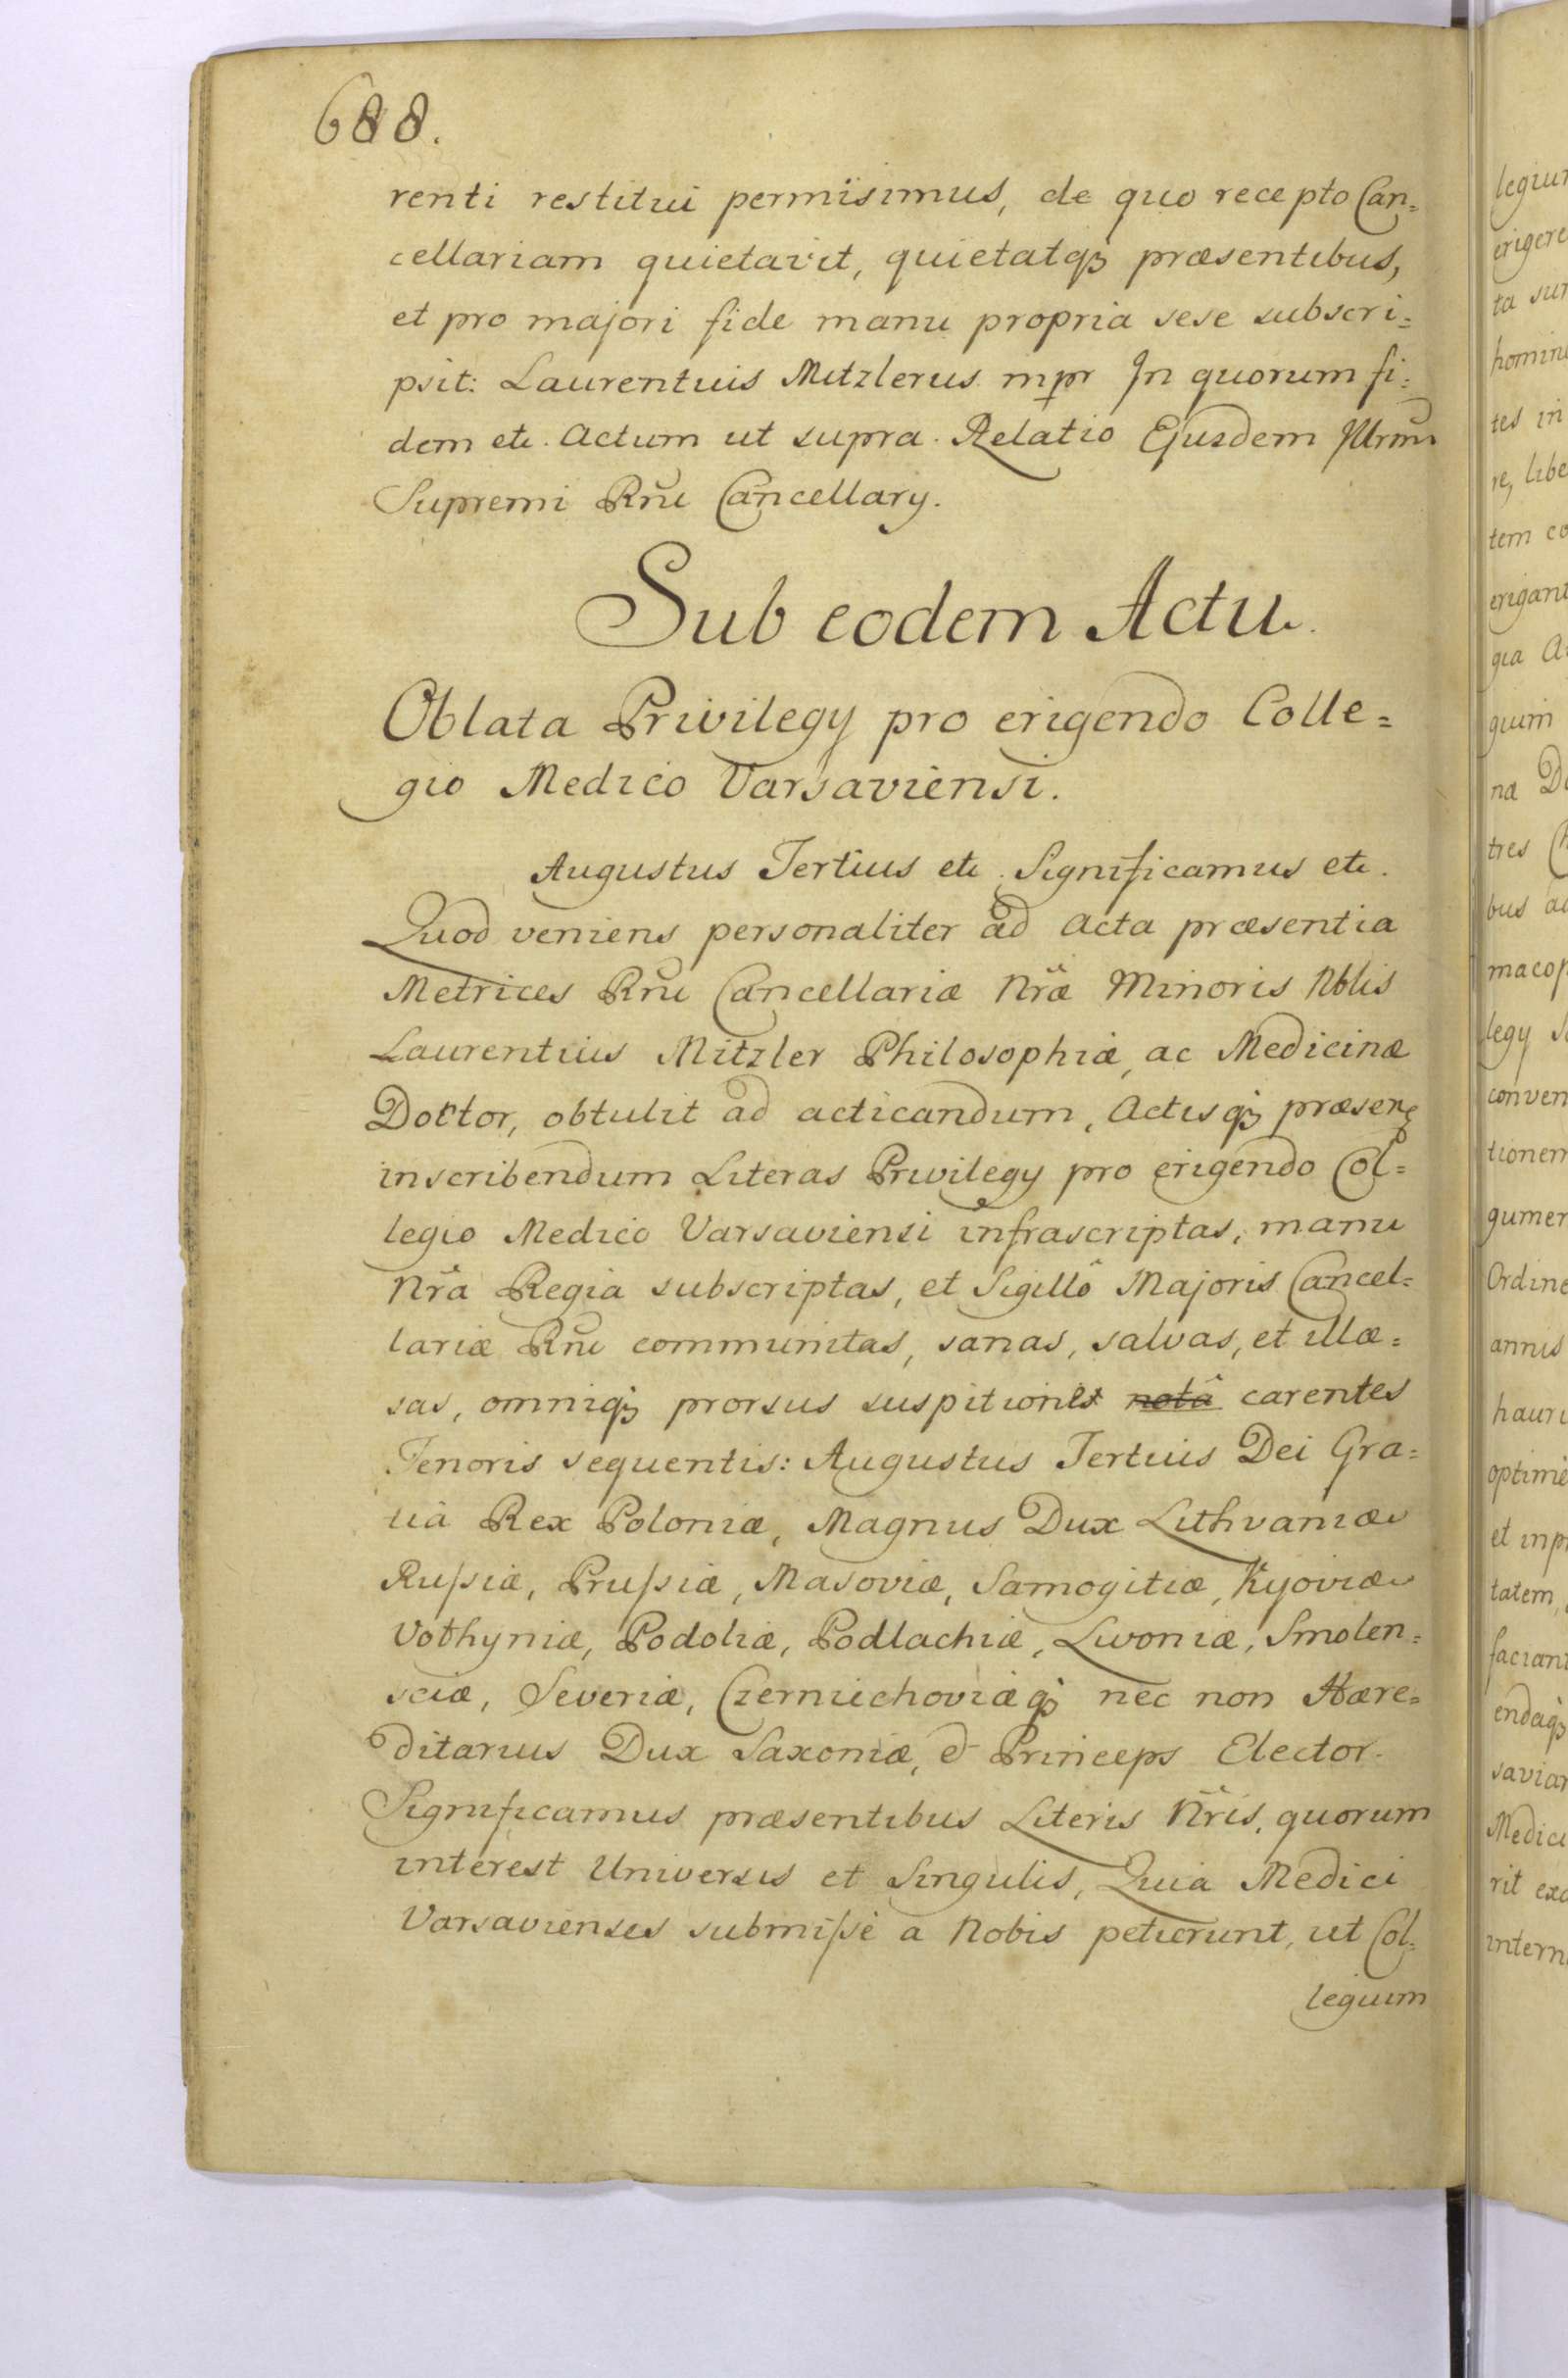 688.
renti restitui permisimus, de quo recepto Can=
cellariam quietavit, quietatq; præsentibus,
et pro majori fide manu propria sese subscri=
psit: Laurentius Mitzlerus mpr In quorum fi=
dem etc. Actum ut supra. Relatio Ejusdem Illrmi
Supremi Rñi Cancellary.
Sub eodem Actu.
Oblata Privilegy pro erigendo Colle=
gio Medico Varsaviensi.
Augustus Tertius etc. Significamus etc.
Quod veniens personaliter ad Acta præsentia
Metrices Rñi Cancellariæ Nrã Minoris Nblis
Laurentius Mitzler Philosophiæ, ac Medicinæ
Doctor, obtulit ad acticandum, Actisq; præsen
inscribendum Literas Privilegy pro erigendo Col=
legio Medico Varsaviensi infrascriptas, manu
Nrã Regia subscriptas, et Sigillô Majoris Cancel=
lariæ Rñi communitas, sanas, salvas, et illæ=
sas, omniq; prorsus suspitione notâ carentes
Tenoris sequentis: Augustus Tertius Dei Gra=
tiâ Rex Poloniæ, Magnus Dux Lithvaniæ
Rußiæ, Prußiæ, Masoviæ, Samogitiæ, Kyoviæ
Volhyniæ, Podoliæ, Podlachiæ, Livoniæ, Smolen=
sciæ, Severiæ, Czerniechoviæq; nec non Hære=
ditarius Dux Saxoniæ, & Princeps Elector.
Significamus præsentibus Literis Nrĩs, quorum
interest Universis et Singulis, Quia Medici
Varsavienses submißè a Nobis petierunt, ut Col=
legium
legium
erigere
ta sun
homini
tes in
re, libe
tem co
erigant
gia A
quim
na D
tres
bus ad
macop
legy
conven
tionem
gumen
Ordine
annis
hauri
optimè
et inp
tatem,
faciant
endaq;
saviam
Medici
rit exa
intern